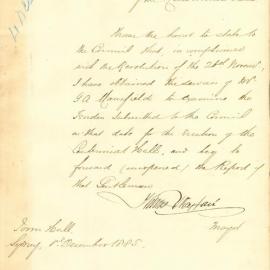 of the
I have the honor to state to
the Council that, in compliance
with the Resolution of the 26th Novr.
I have obtained the services of Mr
G A Mansfield to examine the
Tenders submitted to the Council
on that date for the erection of the
Centennial Hall, and beg to
forward (unopened) the Report of
that Gentleman
Mayor
Town Hall,
Sydney, 1st December 1885.